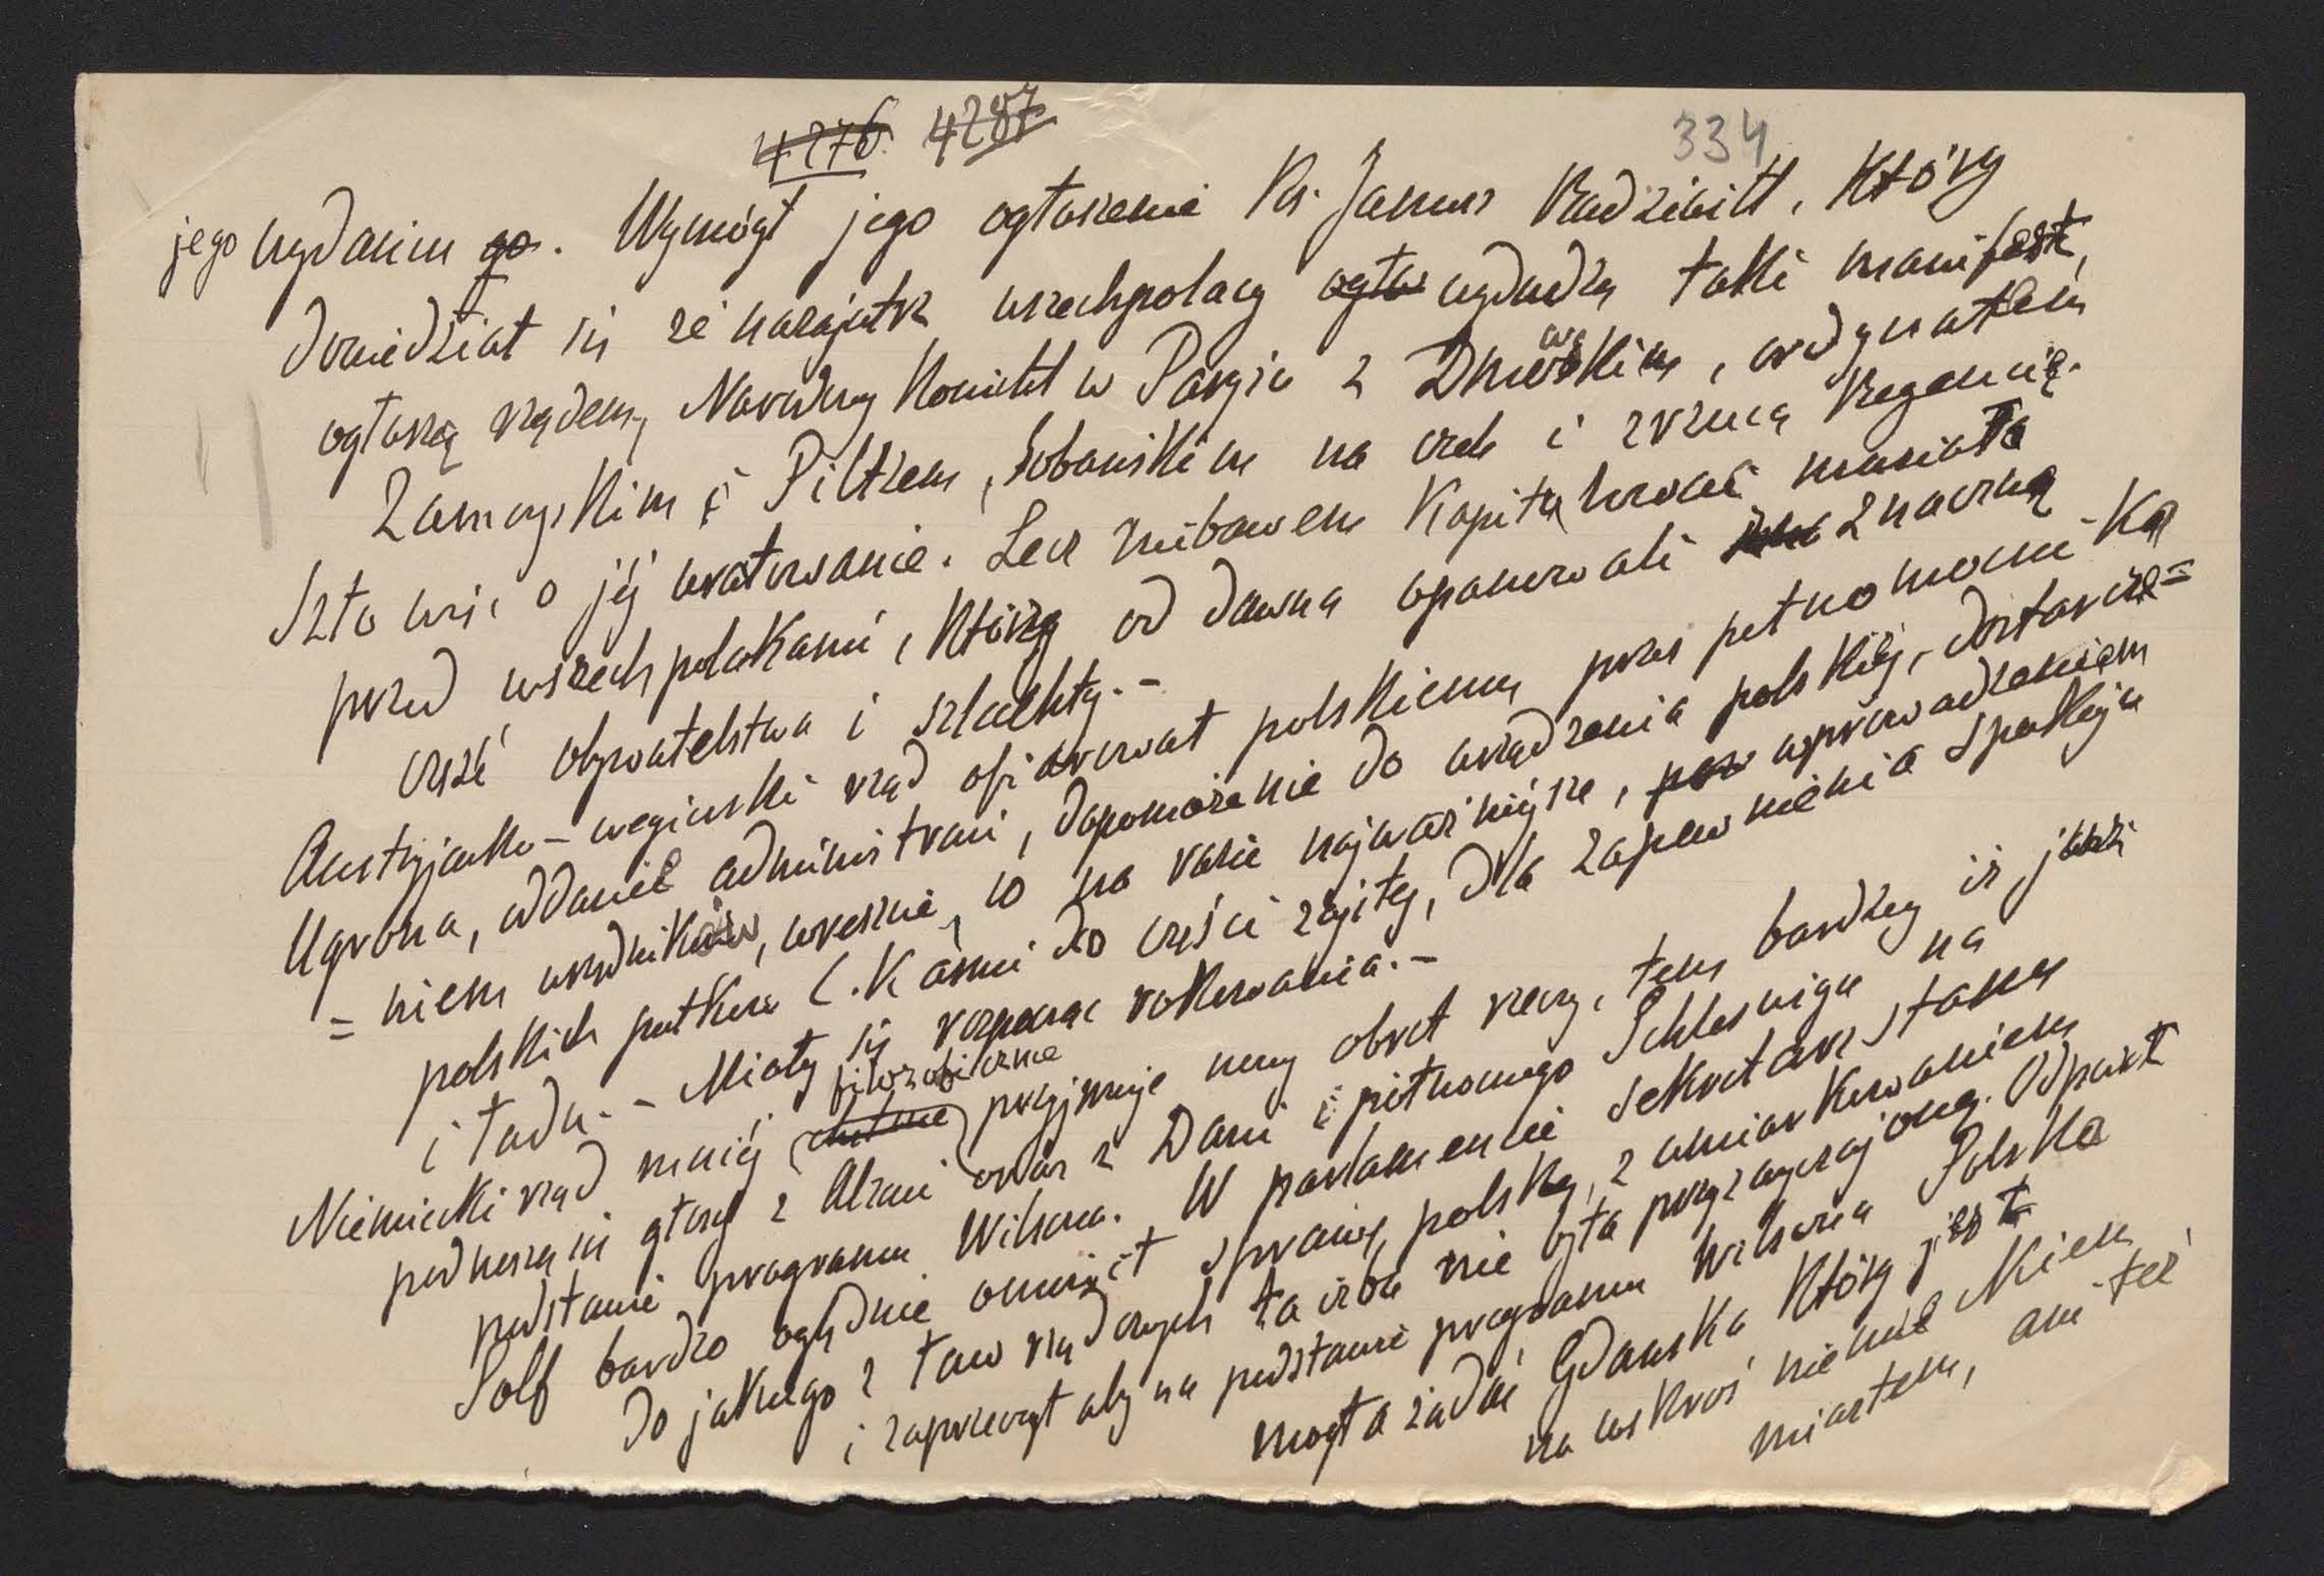 4276 4287
334
jego wydaniem go. Wymógł jego ogłoszenie Ks. Janusz Radziwiłł, który
dowiedział się że nazajutrz wszechpolacy ogłos wydadzą taki manifest,
ogłoszą rządem, Narodowy Komitet w Paryżu z Dmowskim, ordynatem
Zamoyskim i Piltzem, Sobańskim na czele i zrzucą Regencię.
Szło więc o jéj uratowanie. Lecz niebawem kapitulować musiała
przed wszechpolakami, którzy od dawna opanowali znaczną
część obywatelstwa i szlachty.-
Austryjacko-węgierski rząd ofiarował polskiemu przez pełnomocnika
Ugrona, oddanie administracii, dopomożenie do urządzenia polskiéj, dostarcze=
=niem urzędników, wreszcie, co na razie najważniejsze, wprowadzeniem
polskich pułków C.K armii do części zajętej, dla zapewnienia spokoju
i ładu.- Miały się rozpocząć rokowania.-
Niemiecki rząd mniéj filozoficznie przyjmuje nowy obrót rzeczy, tem bardziej iż już
podnoszą się głosy z Alzacii oraz z Danii i północnego Schleswigu na
podstawie programu Wilsona. W parlamencie sekretarz stanu
Solf bardzo oględnie omówił sprawę polską, z umiarkowaniem
do jakiego z ław rządowych ta izba nie była przyzwyczajoną. Odparł
i zaprzeczył aby na podstawie programu Wilsona Polska
mogła żądać Gdańska który jest
na wskroś niemieckiem
miastem, ani też